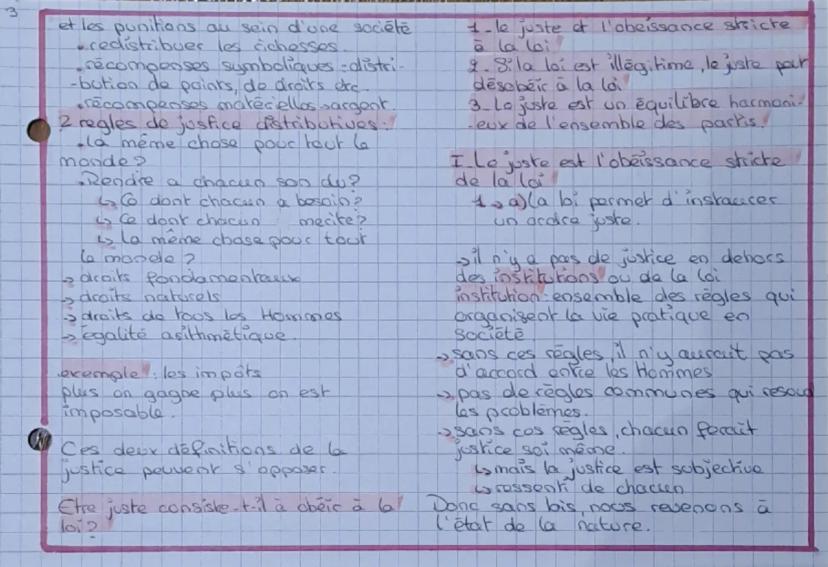 3
et les punitions au sein d'une société
. redistribuer les richesses.
. récompenses symboliques : distri-
-bution de points, de droits etc.
. récompenses matérielles → argent.
2 règles de justice distributives :
. la même chose pour tout le
monde ?
. Rendre a chacun son du ?
↳ Ce dont chacun a besoin ?
↳ Ce dont chacun mérite ?
↳ la même chose pour tout
le monde ?
→ droits fondamentaux
→ droits naturels
→ droits de tous les Hommes
→ égalité arithmétique.
exemple : les impôts
plus on gagne plus on est
imposable.
Ces deux définitions de la
justice peuvent s'opposer.
Etre juste consiste-t-il à obéir à la
loi ?
1 - le juste et l'obéissance stricte
à la loi
2 - Si la loi est illégitime, le juste peut
désobéir à la loi
3 - Le juste est un équilibre harmoni-
-eux de l'ensemble des partis.
I - Le juste est l'obéissance stricte
de la loi
1 → a) la loi permet d'instaurer
un ordre juste.
→ il n'y a pas de justice en dehors
des institutions ou de la loi
institution : ensemble des règles qui
organisent la vie pratique en
société
→ sans ces règles, il n'y aurait pas
d'accord entre les Hommes
→ pas de règles communes qui resoud
les problèmes.
→ sans ces règles, chacun ferait
justice soi même.
↳ mais la justice est subjective
↳ ressenti de chacun
Donc sans lois, nous revenons à
l'état de la nature.